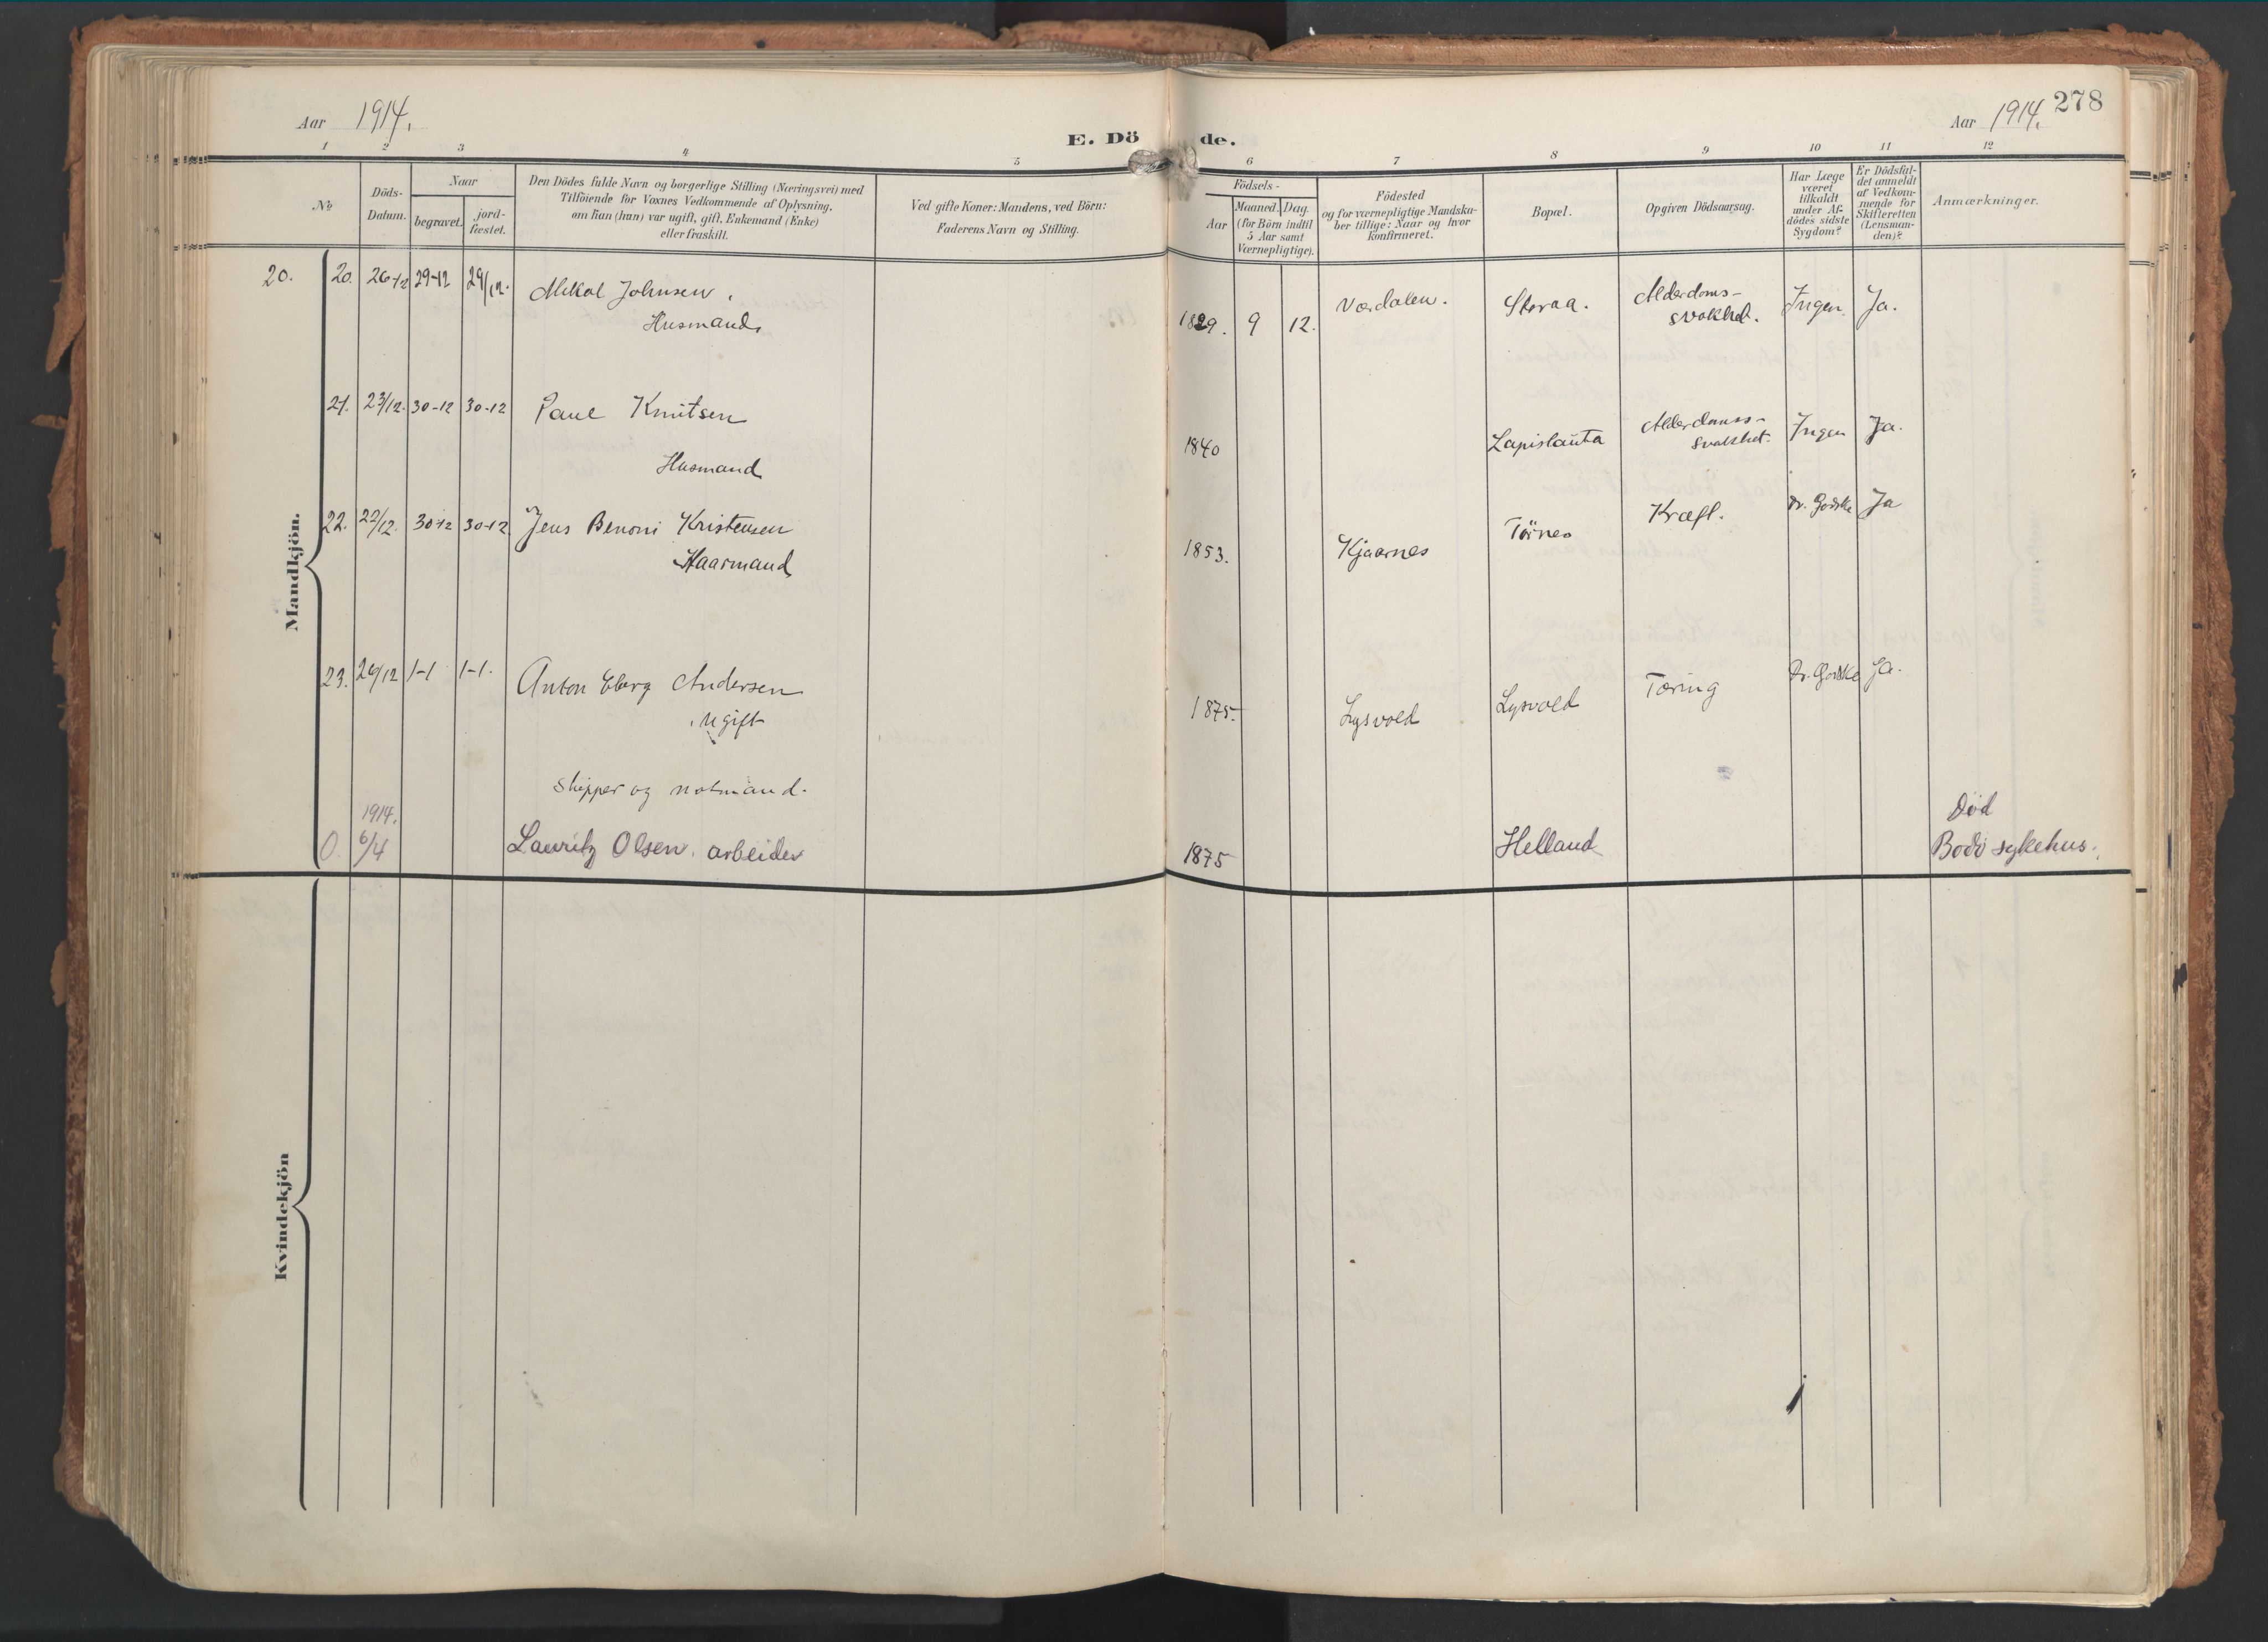 Aar 1914.
E. Dö de.
Aar 1914. 278
1 2 3 4 5 6 7 8 9 10 11 12
No
Döds-
Datum.
Naar
begravet.
jord-
fæstet.
Den Dödes fulde Navn og borgerlige Stilling (Næringsvei) med
Tilföiende for Voxnes Vedkommende af Oplysning,
om han (hun) var ugift, gift, Enkemand (Enke)
eller fraskilt.
Ved gifte Koner: Mandens, ved Börn:
Faderens Navn og Stilling.
Födsels-
Aar
Maaned. Dag.
(for Börn indtil
5 Aar samt
Værnepligtige).
Födested
og for værnepligtige Mandska-
ber tillige: Naar og hvor
konfirmeret.
Bopæl.
Opgiven Dödsaarsag.
Har Læge
været
tilkaldt
under Af-
dödes sidste
Sygdom?
Er Dödsfal-
det anmeldt
af Vedkom-
mende for
Skifteretten
(Lensman-
den)?
Anmærkninger.
Mandkjön.
20. 20. 26-12 29-12 29/12. Mikal Johnsen.
Husmand.
1829. 9 12. Værdalen. Storaa. Alderdoms-
svakhet. Ingen Ja.
21. 23/12. 30-12 30-12 Paul Knutsen
Husmand
1840 Lapislauta Alderdomss-
svakhet. Ingen Ja.
22. 22/12. 30-12 30-12 Jens Benoni Kristensen
Haarmand
1853. Kjaarnes Tornes Kræft. Dr. Godske Ja
23. 26/12 1-1 1-1. Anton Eberg Andersen
ugift
skipper og notmand.
1875. Lysvold Lysvold Tæring Dr. Godske Ja.
1914.
0. 6/4 Lauritz Olsen. arbeider
1875 Helland
Død
Bodø sykehus.
Kvindekjön